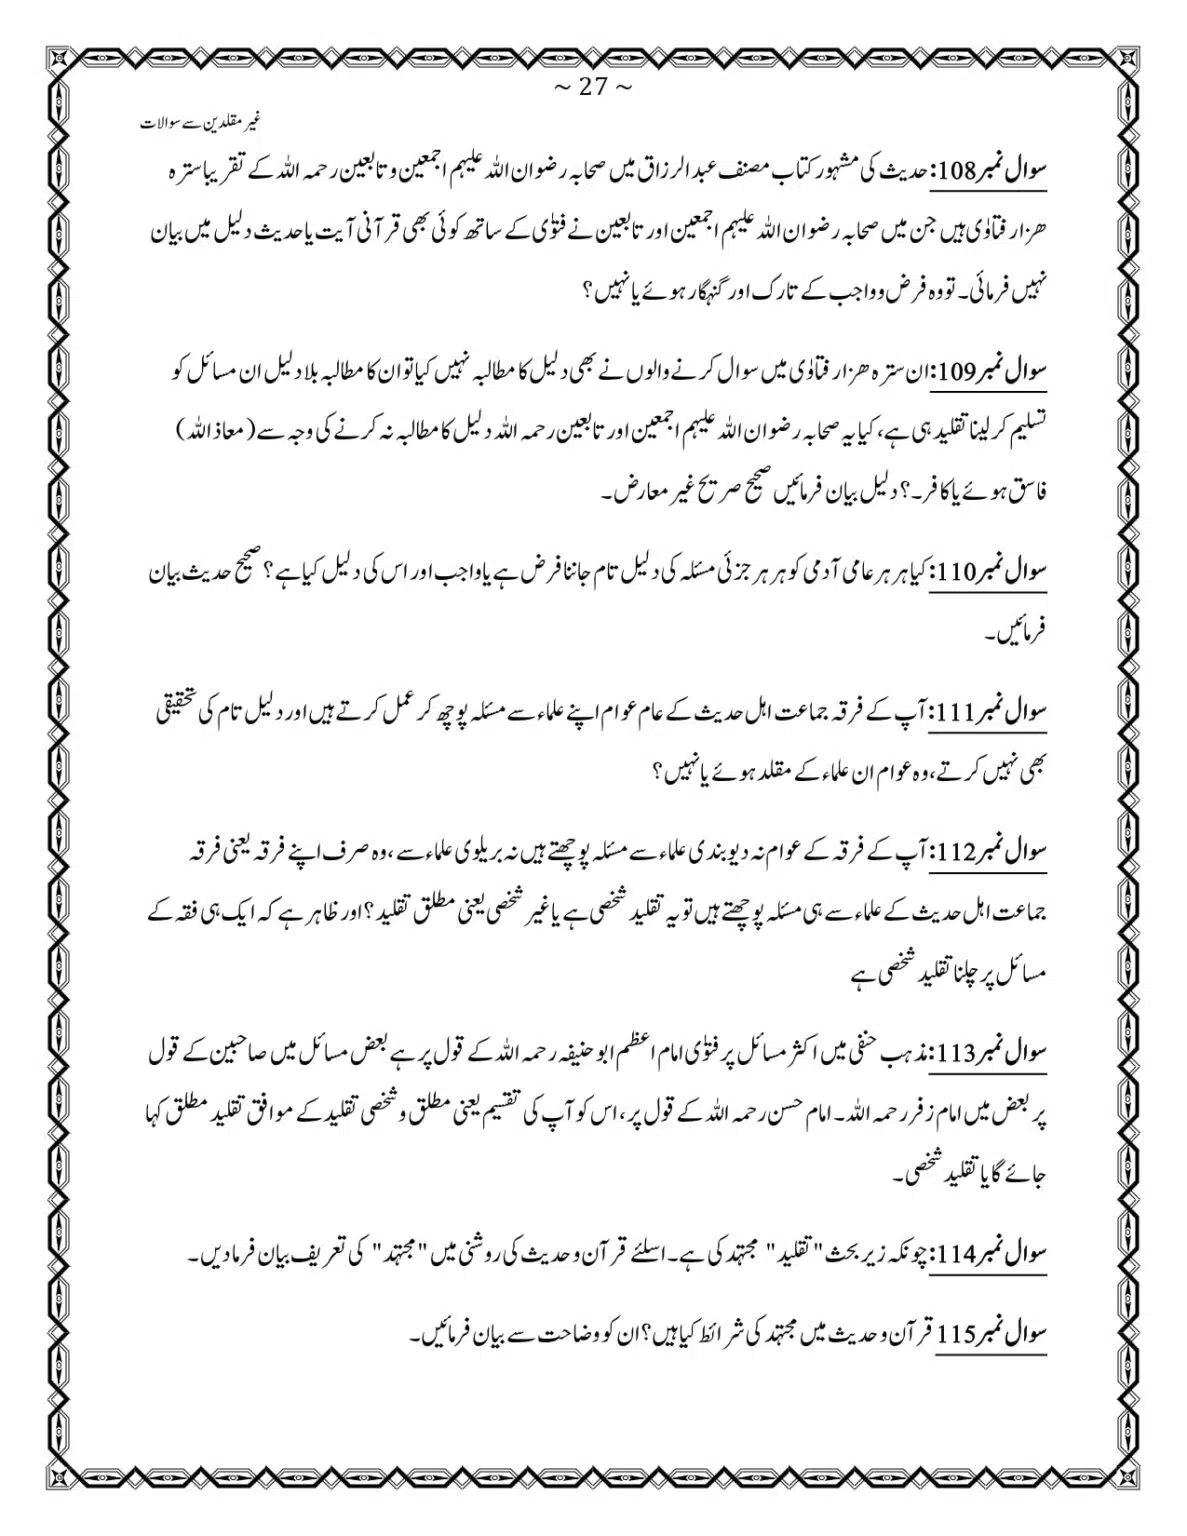 ~ 27 ~
غیر مقلدین سے سوالات
سوال نمبر 108: حدیث کی مشہور کتاب مصنف عبد الرزاق میں صحابہ رضوان اللہ علیہم اجمعین و تابعین رحمہ اللہ کے تقریبا سترہ
ھزار فتاوٰی ہیں جن میں صحابہ رضوان اللہ علیہم اجمعین اور تابعین نے فتوٰی کے ساتھ کوئی بھی قرآنی آیت یا حدیث دلیل میں بیان
نہیں فرمائی۔ تو وہ فرض و واجب کے تارک اور گنہگار ہوئے یا نہیں؟
سوال نمبر 109: ان سترہ ھزار فتاوٰی میں سوال کرنے والوں نے بھی دلیل کا مطالبہ نہیں کیا تو ان کا مطالبہ بلا دلیل ان مسائل کو
تسلیم کر لینا تقلید ہی ہے، کیا یہ صحابہ رضوان اللہ علیہم اجمعین اور تابعین رحمہ اللہ دلیل کا مطالبہ نہ کرنے کی وجہ سے (معاذ اللہ)
فاسق ہوئے یا کافر۔؟ دلیل بیان فرمائیں صحیح صریح غیر معارض۔
سوال نمبر 110: کیا ہر ہر عامی آدمی کو ہر ہر جزئی مسئلہ کی دلیل تام جاننا فرض ہے یا واجب اور اس کی دلیل کیا ہے؟ صحیح حدیث بیان
فرمائیں۔
سوال نمبر 111: آپ کے فرقہ جماعت اہل حدیث کے عام عوام اپنے علماء سے مسئلہ پوچھ کر عمل کرتے ہیں اور دلیل تام کی تحقیقی
بھی نہیں کرتے، وہ عوام ان علماء کے مقلد ہوئے یا نہیں؟
سوال نمبر 112: آپ کے فرقہ کے عوام نہ دیوبندی علماء سے مسئلہ پوچھتے ہیں نہ بریلوی علماء سے، وہ صرف اپنے فرقہ یعنی فرقہ
جماعت اہل حدیث کے علماء سے ہی مسئلہ پوچھتے ہیں تو یہ تقلید شخصی ہے یا غیر شخصی یعنی مطلق تقلید؟ اور ظاہر ہے کہ ایک ہی فقہ کے
مسائل پر چلنا تقلید شخصی ہے
سوال نمبر 113: مذہب حنفی میں اکثر مسائل پر فتوٰی امام اعظم ابو حنیفہ رحمہ اللہ کے قول پر ہے بعض مسائل میں صاحبین کے قول
پر بعض میں امام زفر رحمہ اللہ۔ امام حسن رحمہ اللہ کے قول پر، اس کو آپ کی تقسیم یعنی مطلق و شخصی تقلید کے موافق تقلید مطلق کہا
جائے گا یا تقلید شخصی۔
سوال نمبر 114: چونکہ زیر بحث "تقلید" مجتہد کی ہے۔ اسلئے قرآن و حدیث کی روشنی میں "مجتہد" کی تعریف بیان فرما دیں۔
سوال نمبر 115 قرآن و حدیث میں مجتہد کی شرائط کیا ہیں؟ ان کو وضاحت سے بیان فرمائیں۔